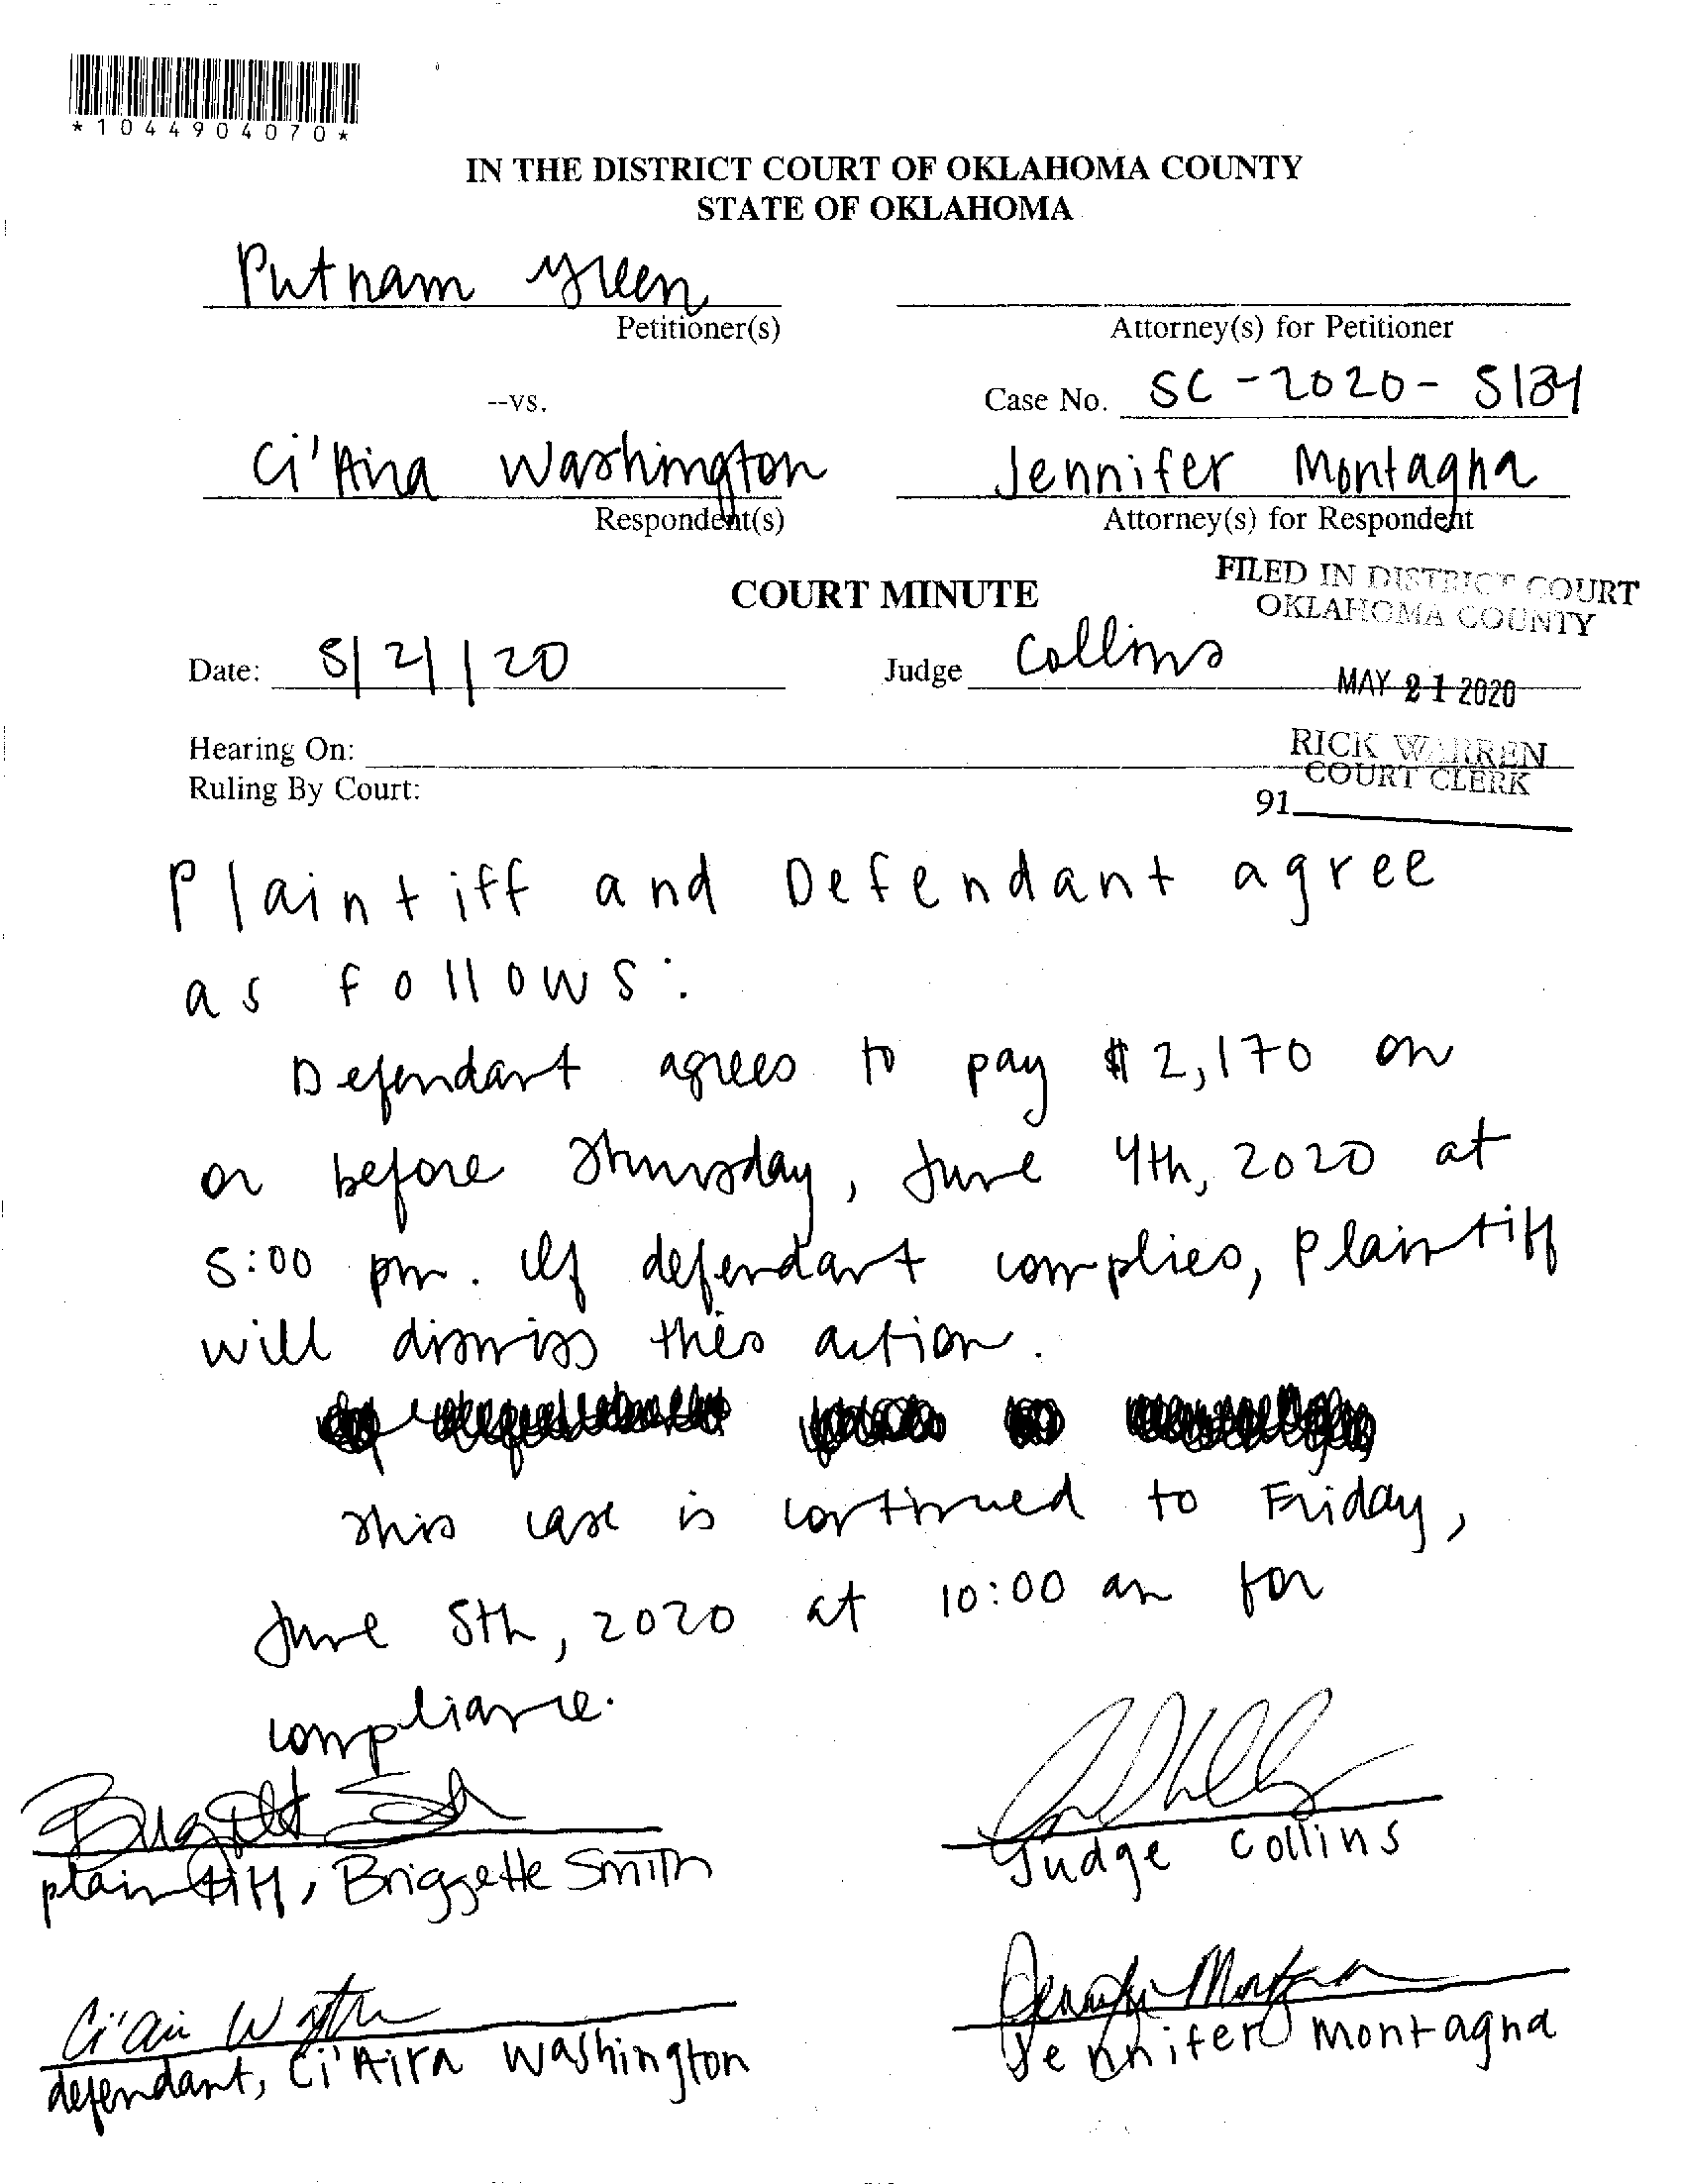 *1044904070*
IN THE DISTRICT COURT OF OKLAHOMA COUNTY
STATE OF OKLAHOMA
Putnam Green
Petitioner(s)
Attorney(s) for Petitioner
--vs.
Case No. SC-2020-5134
Ci'Aira Washington
Respondent(s)
Jennifer Montagna
Attorney(s) for Respondent
COURT MINUTE
FILED IN DISTRICT COURT
OKLAHOMA COUNTY
Date: 5/21/20
Judge Collins
MAY 21 2020
Hearing On:
RICK WARREN
COURT CLERK
Ruling By Court:
91
Plaintiff and Defendant agree
as follows:
Defendant agrees to pay $2,170 on
or before Thursday, June 4th, 2020 at
5:00 pm. If defendant complies, plaintiff
will dismiss this action.
This case is continued to Friday,
June 5th, 2020 at 10:00 am for
compliance.
plaintiff, Briggette Smith
Judge Collins
defendant, Ci'Aira Washington
Jennifer Montagna